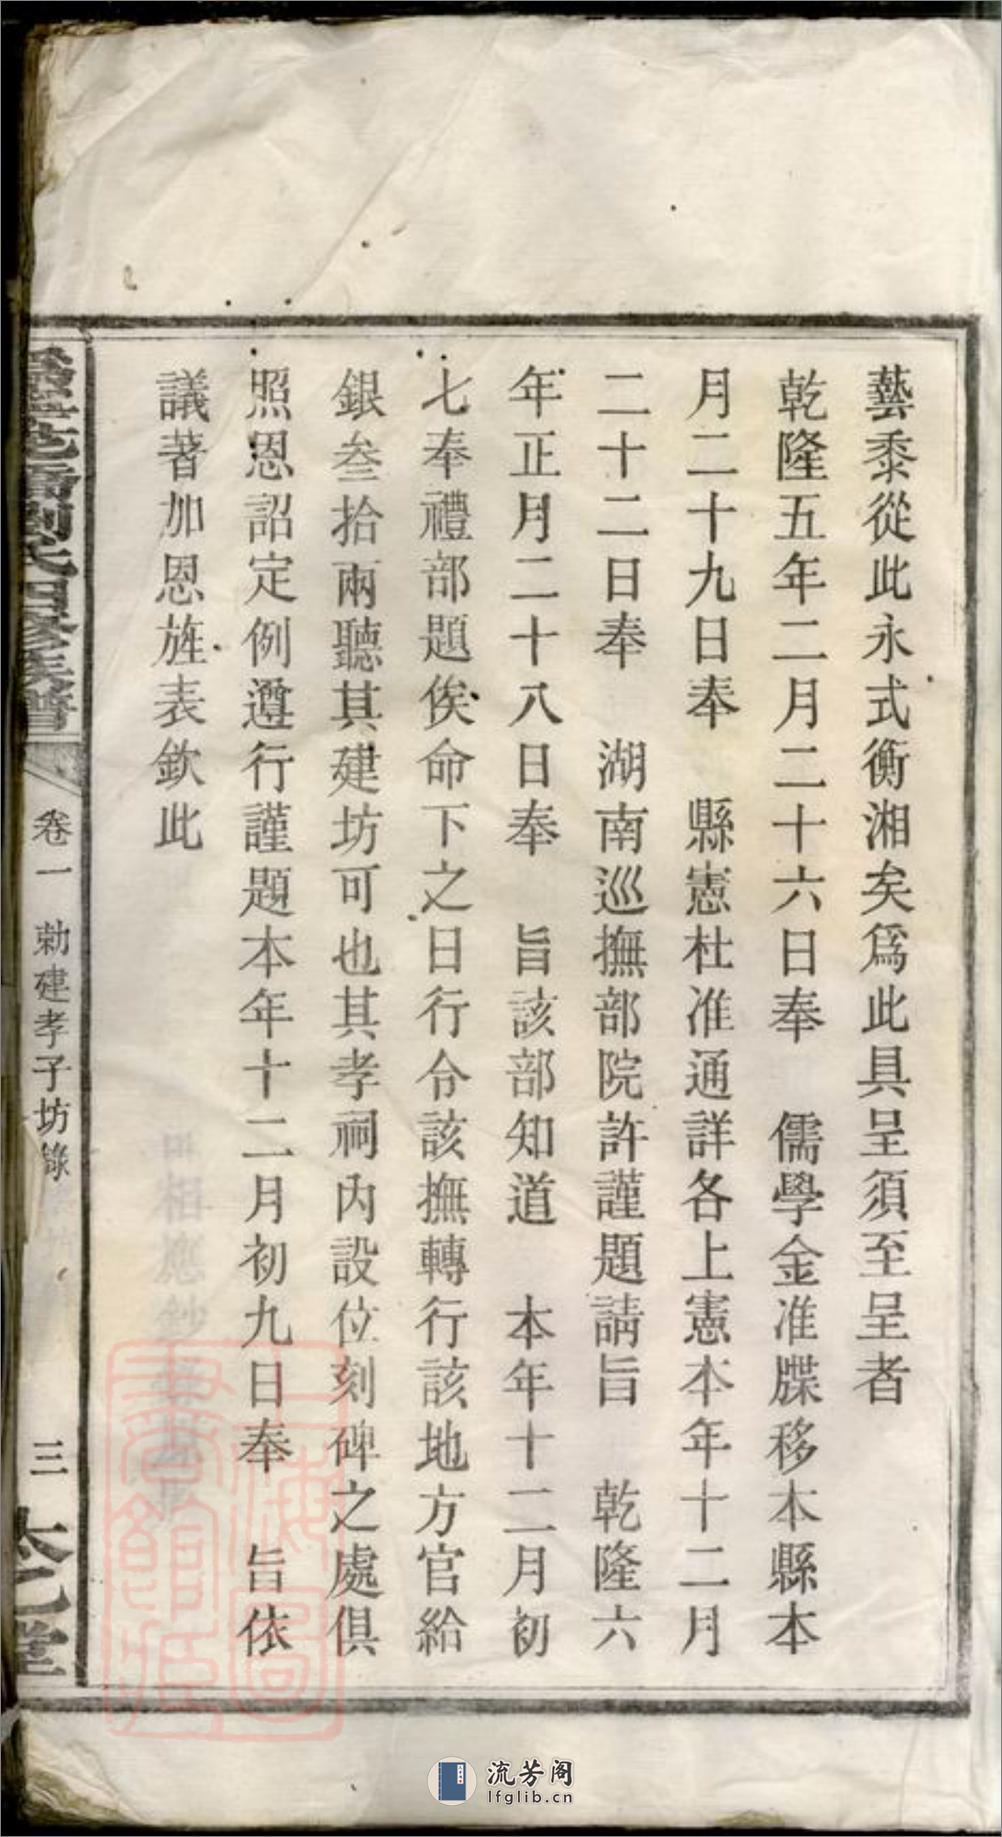 藝黍從此永式衡湘矣爲此具呈須至呈者
乾隆五年二月二十六日奉　儒學金准牒移本縣本
月二十九日奉　縣憲杜准通詳各上憲本年十二月
二十二日奉　湖南巡撫部院許謹題請旨　乾隆六
年正月二十八日奉　旨該部知道　本年十二月初
七奉禮部題俟命下之日行令該撫轉行該地方官給
銀叁拾兩聽其建坊可也其孝祠內設位刻碑之處俱
照恩詔定例遵行謹題本年十二月初九日奉　旨依
議著加恩旌表欽此
劉氏四修族譜
卷一　勅建孝子坊錄
三
太乙堂
流芳阁
lfglib.cn